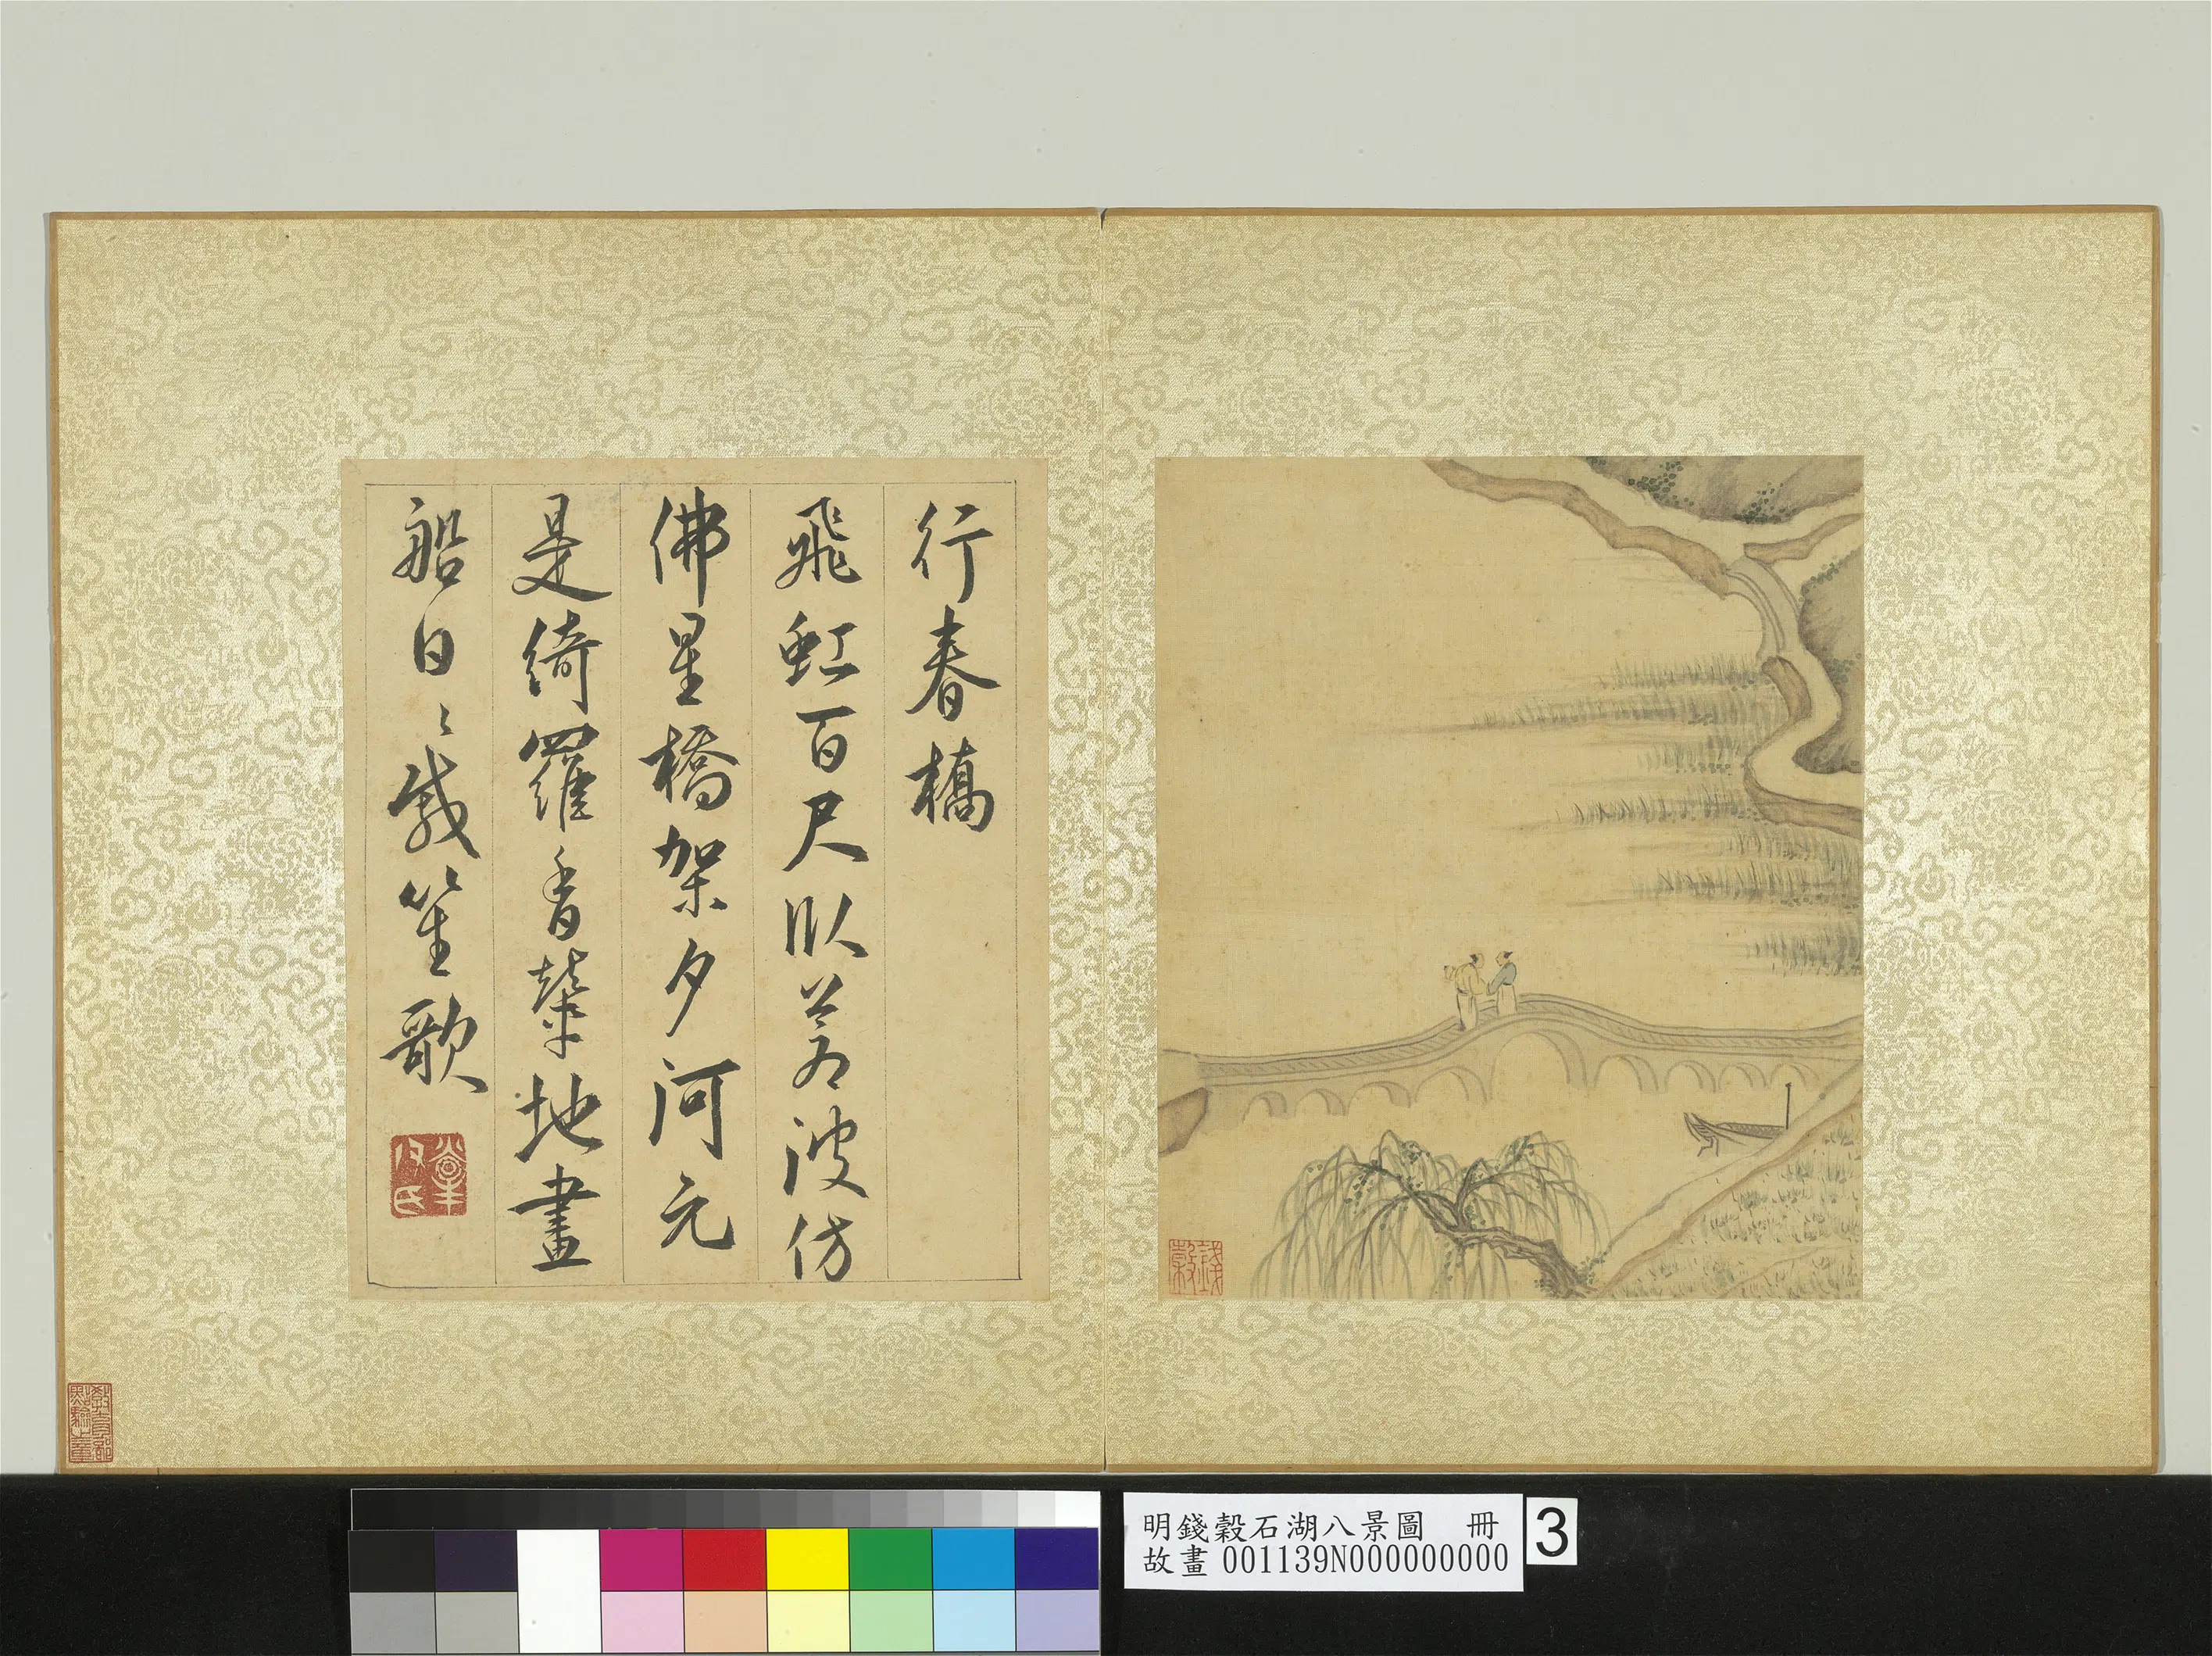 行春橋
飛虹百尺臥蒼波仿
佛星橋架夕河元
是綺羅香輦地畫
船日〻載笙歌
錢穀
教育部
點驗之章
明錢穀石湖八景圖 冊
故畫 001139N000000000
3